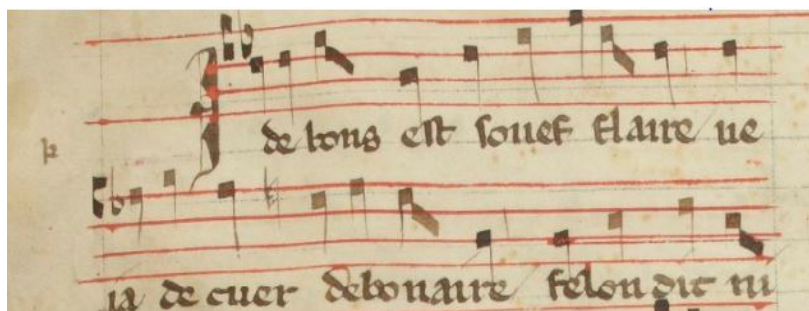 de bons est souef flaire ue
ia de cuer debonaire felon dit ni